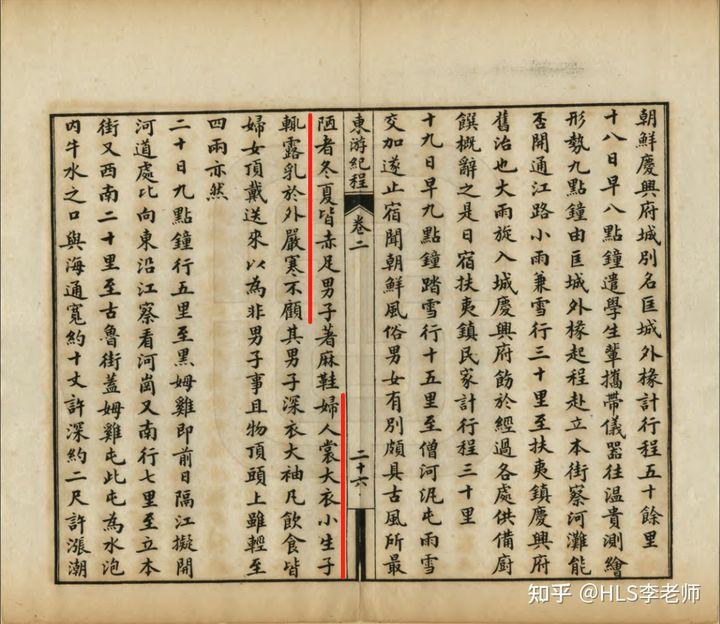 朝鮮慶興府城別名匡城外掾計行程五十餘里
十八日早八點鐘遣學生輩攜帶儀器往溫貴測繪
形勢九點鐘由匡城外掾起程赴立本街察河灘能
否開通江路小雨兼雪行三十里至扶夷鎮慶興府
舊治也大雨旋入城慶興府飭於經過各處供備廚
饌概辭之是日宿扶夷鎮民家計行程三十里
十九日早九點鐘踏雪行十五里至僧河泥屯雨雪
交加遂止宿聞朝鮮風俗男女有別頗具古風所最
東游紀程
卷二
二十六
陋者冬夏皆赤足男子著麻鞋婦人裳大衣小生子
輒露乳於外嚴寒不顧其男子深衣大袖凡飲食皆
婦女頂戴送來以為非男子事且物頂頭上雖輕至
四兩亦然
二十日九點鐘行五里至黑姆雞即前日隔江擬開
河道處此向東沿江察看河崗又南行七里至立本
街又西南二十里至古魯街蓋姆雞屯此屯為水泡
內牛水之口與海通寬約十丈許深約二尺許漲潮
知乎 @HLS李老师